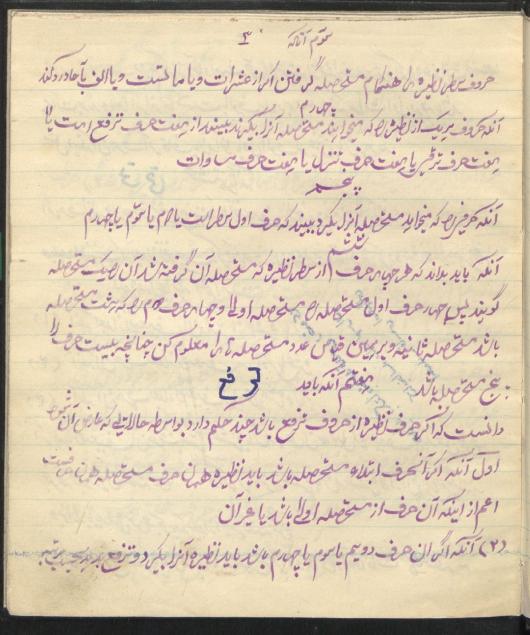 ۳ سوّم آنکه
حروف سطر نظیره را هنگام مستحصله گرفتن اگر از عشرات و یا مآت است و یا الف بآحاد رد کند
چهارم
آنکه حروف هر یک از نظیره را که میخواهند مستحصله آنرا بگیرند ببینند از هفت حرف ترفع است یا
هفت حرف ترقی یا هفت حرف تنزل یا هفت حرف مساوات
پنجم
آنکه حرفی را که میخواهد مستحصله آنرا بگیرد ببیند که حرف اول سطر است یا دوم یا سوّم یا چهارم
ششم
آنکه باید بداند که هر چهار حرف از سطر نظیره که مستحصله آن گرفته شد آن را یک مستحصله
گویند پس چهار حرف اول مستحصله را مستحصله اولی و چهار حرف دوم را که هشت مستحصله
باشد مستحصله ثانیه و بر همین قیاس عدد مستحصله را معلوم کن چنانچه بیست حرف را
پنج مستحصله باشد هفتم آنکه باید
دانست که اگر حرف نظیره از حروف ترفع باشد چند حکم دارد بواسطه حالاتی که عارض آن میشود
اول آنکه اگر آنحرف ابتداء مستحصله باشد باید نظیره همان حرف مستحصله همان حرفست
اعم از اینکه آن حرف از مستحصله اولی باشد یا غیر آن
(۲) آنکه اگر ان حرف دویم یا سوم یا چهارم باشد باید نظیره آنرا بگیرد و ترفع بدهد بحسب مرتبه